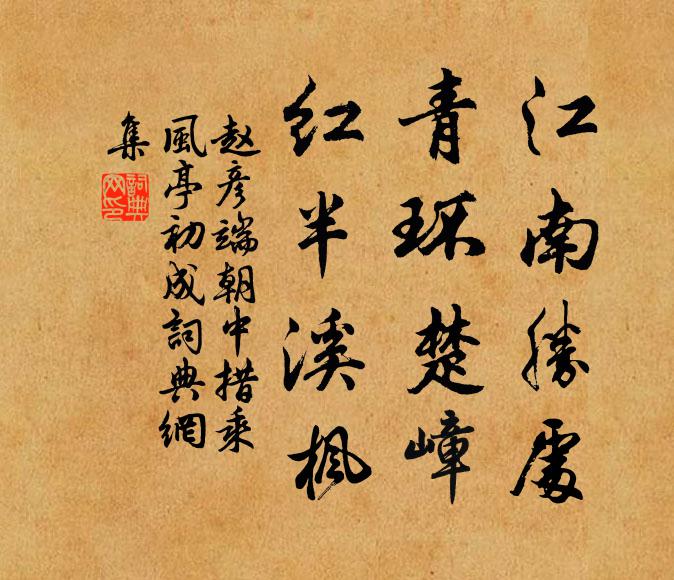 江南勝處
青环楚嶂
红半溪楓
赵彦端朝中措乘
風亭初成詞典網
集
詞典
网印